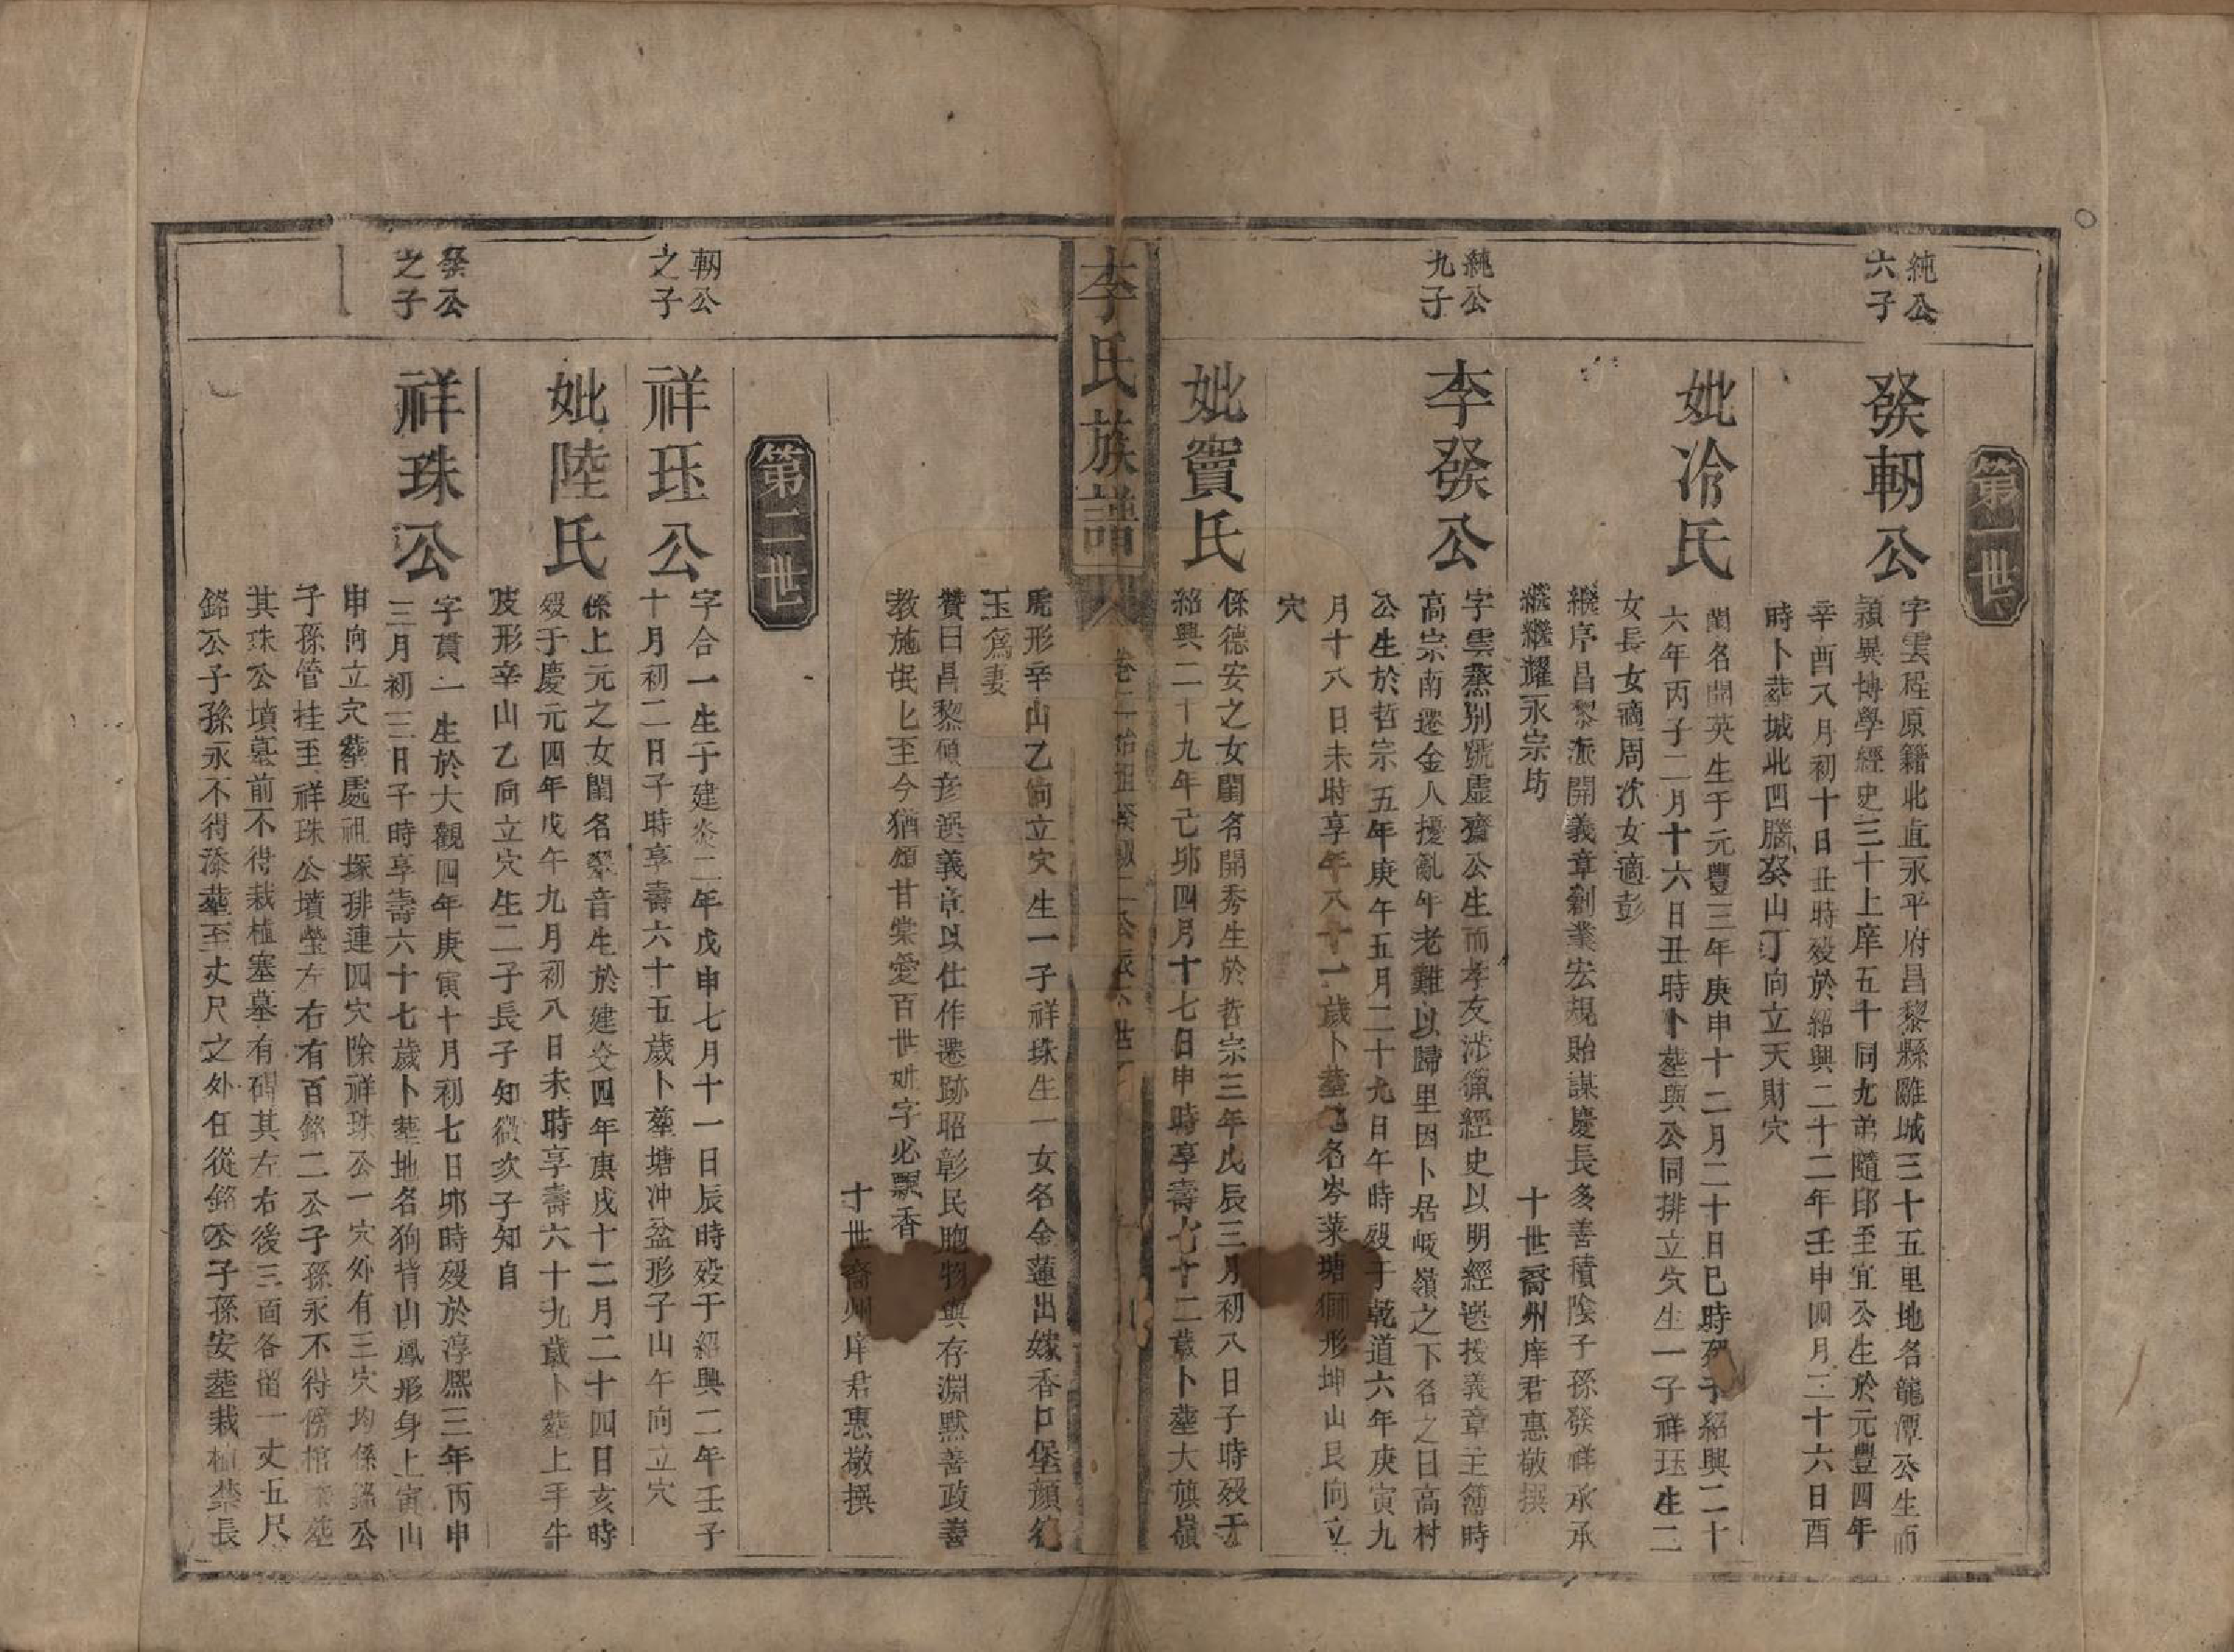 第一世
純公
六子
發軔公
字雲程原籍北直永平府昌黎縣離城三十五里地名龍潭公生而
頴異博學經史三十上庠五十同九弟隨郎至宜公生於元豐四年
辛酉八月初十日丑時殁於紹興二十二年壬申四月二十六日酉
時卜塟城北四腦癸山丁向立天財穴
妣冷氏
閨名開英生于元豐三年庚申十二月二十日巳時殁于紹興二十
六年丙子二月十六日丑時卜塟與公同排立穴生一子祥珏生二
女長女適周次女適彭
纘序昌黎派開義章創業宏規貽謀慶長多善積陰子孫發祥承承
繼繼耀永宗坊
十世裔州庠君惠敬撰
純公
九子
李發公
字雲蒸別號虛齋公生而孝友涉獵經史以明經選授義章主簿時
高宗南遷金人擾亂年老難以歸里因卜居岐嶺之下名之曰高村
公生於哲宗五年庚午五月二十九日午時殁于乾道六年庚寅九
月十八日未時享年八十一歲卜塟地名岑菜塘獅形坤山艮向立
穴
妣竇氏
係德安之女閨名開秀生於哲宗三年戊辰三月初八日子時殁于
紹興二十九年己卯四月十七日申時享壽七十二歲卜塟大旗嶺
李氏族譜
虎形辛山乙向立穴生一子祥珠生一女名金蓮出嫁香口堡顏徳
玉爲妻
贊曰昌黎碩彦選義章以仕作遷跡昭彰民胞物與存淵默善政善
教施氓匕至今猶頌甘棠愛百世姓字必飄香
十世裔州庠君惠敬撰
第二世
軔公
之子
祥珏公
字合一生于建炎二年戊申七月十一日辰時殁于紹興二年壬子
十月初二日子時享壽六十五歲卜塟塘冲盆形子山午向立穴
妣陸氏
係上元之女閨名翠音生於建炎四年庚戌十二月二十四日亥時
殁于慶元四年戊午九月初八日未時享壽六十九歲卜塟上手牛
皮形辛山乙向立穴生二子長子知微次子知自
發公
之子
祥珠公
字貫一生於大觀四年庚寅十月初七日卯時殁於淳熙三年丙申
三月初三日子時享壽六十七歲卜塟地名狗背山鳳形身上寅山
申向立穴塟處祖塚排連四穴除祥珠公一穴外有三穴均係銘公
子孫管挂至祥珠公墳塋左右有百銘二公子孫永不得傍棺塟
其珠公墳墓前不得栽植塞墓有碑其左右後三面各留一丈五尺
銘公子孫永不得添塟至丈尺之外任從銘公子孫安塟栽植禁長